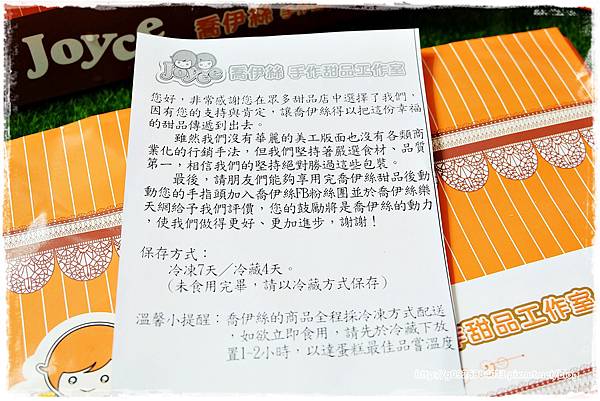 Joyce
Joyce 喬伊絲 手作甜品工作室
您好，非常感謝您在眾多甜品店中選擇了我們，
因有您的支持與肯定，讓喬伊絲得以把這份幸福
的甜品傳遞到出去。
雖然我們沒有華麗的美工版面也沒有各類商
業化的行銷手法，但我們堅持著嚴選食材、品質
第一，相信我們的堅持絕對勝過這些包裝。
最後，請朋友們能夠享用完喬伊絲甜品後動
動您的手指頭加入喬伊絲FB粉絲團並於喬伊絲樂
天網給予我們評價，您的鼓勵將是喬伊絲的動力
，使我們做得更好、更加進步，謝謝！
保存方式：
冷凍7天／冷藏4天。
（未食用完畢，請以冷藏方式保存）
溫馨小提醒：喬伊絲的商品全程採冷凍方式配送
，如欲立即食用，請先於冷藏下放
置1~2小時，以達蛋糕最佳品嘗溫度
手作甜品工作室